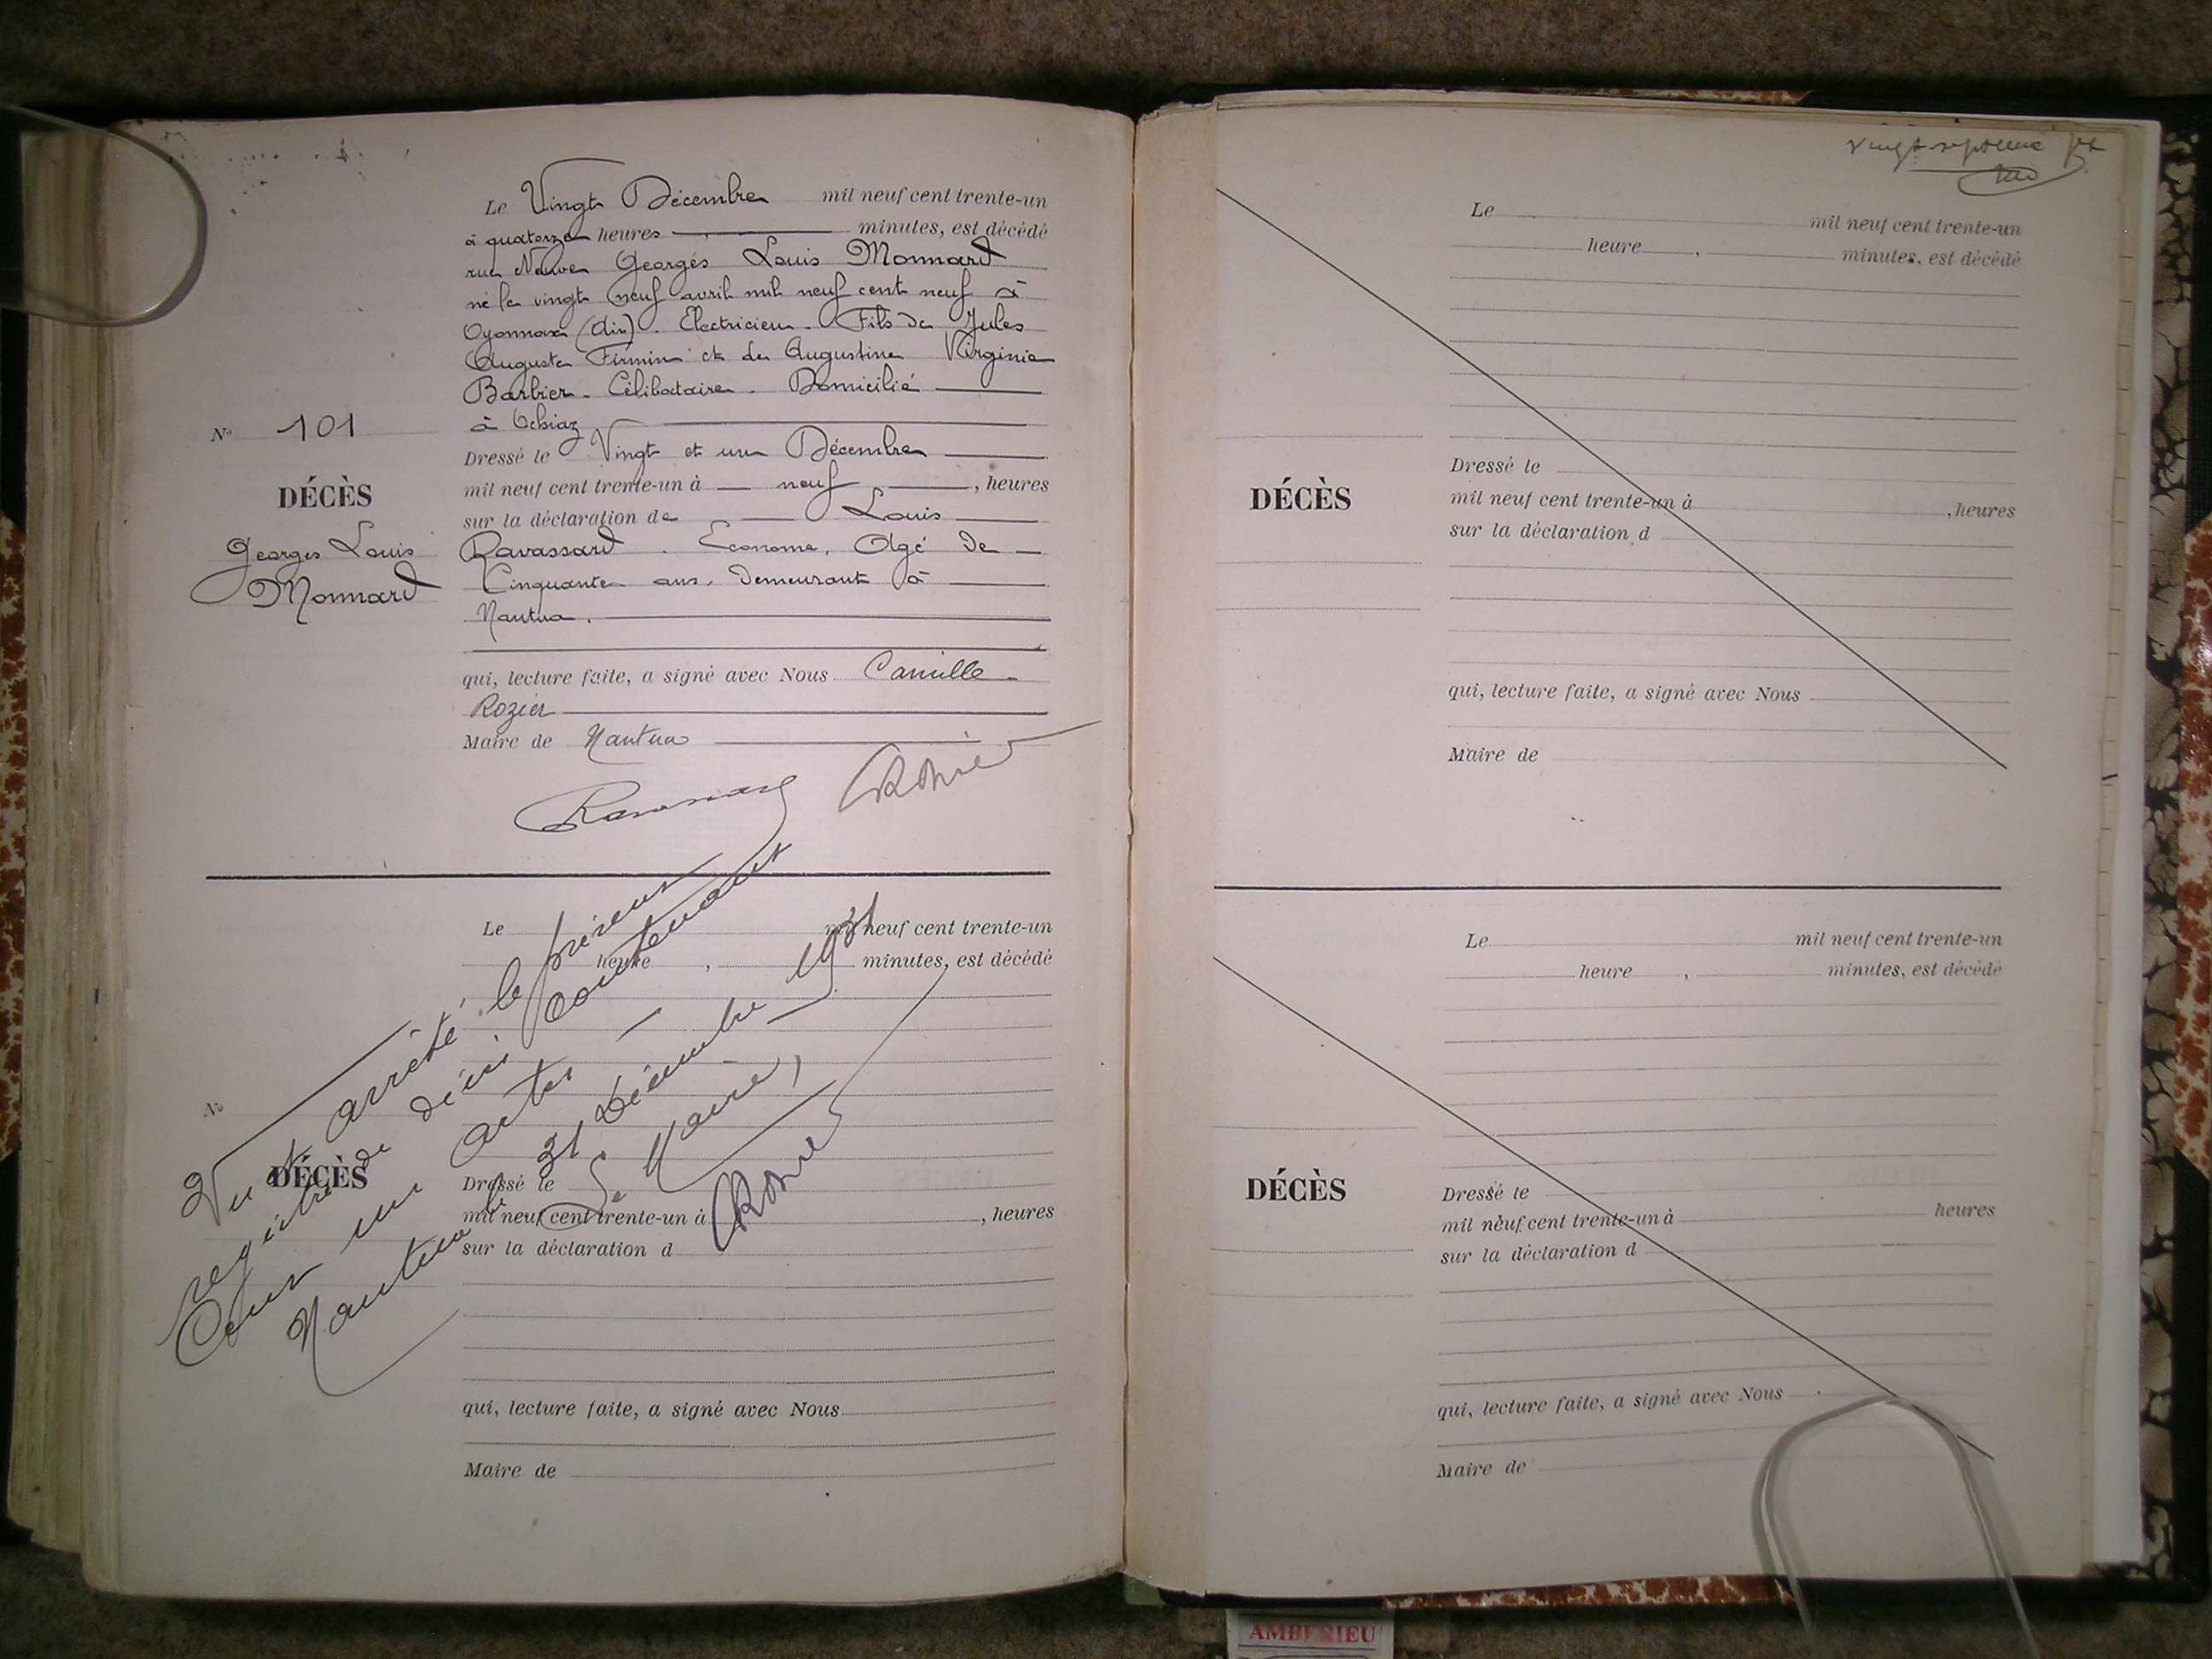 Le Vingt Décembre mil neuf cent trente-un
à quatorze heures minutes, est décédé
rue Neuve Georges Louis Monnard
né le vingt neuf avril mil neuf cent neuf à
Oyonnax (Ain). Electricien. Fils de Jules
Auguste Firmin et de Augustine Virginie
Barbier. Célibataire. Domicilié
à Ochiaz
N° 101
DÉCÈS
Georges Louis
Monnard
Dressé le Vingt et un Décembre
mil neuf cent trente-un à neuf, heures
sur la déclaration de Louis
Ravassard. Econome, Agé de
Cinquante ans, demeurant à
Nantua.
qui, lecture faite, a signé avec Nous Camille
Rozier
Maire de Nantua
Ravassard Rozier
Le mil neuf cent trente-un
heure , minutes, est décédé
N°
DÉCÈS
Dressé le
mil neuf cent trente-un à , heures
sur la déclaration d
qui, lecture faite, a signé avec Nous
Maire de
Vu et arrêté le présent
registre de décès contenant
Cent un actes
Nantua le 31 Décembre 1931
Le Maire,
Rozier
vingt-septième
Le mil neuf cent trente-un
heure , minutes, est décédé
DÉCÈS
Dressé le
mil neuf cent trente-un à , heures
sur la déclaration d
qui, lecture faite, a signé avec Nous
Maire de
Le mil neuf cent trente-un
heure , minutes, est décédé
DÉCÈS
Dressé le
mil neuf cent trente-un à heures
sur la déclaration d
qui, lecture faite, a signé avec Nous
Maire de
AMBERIEU